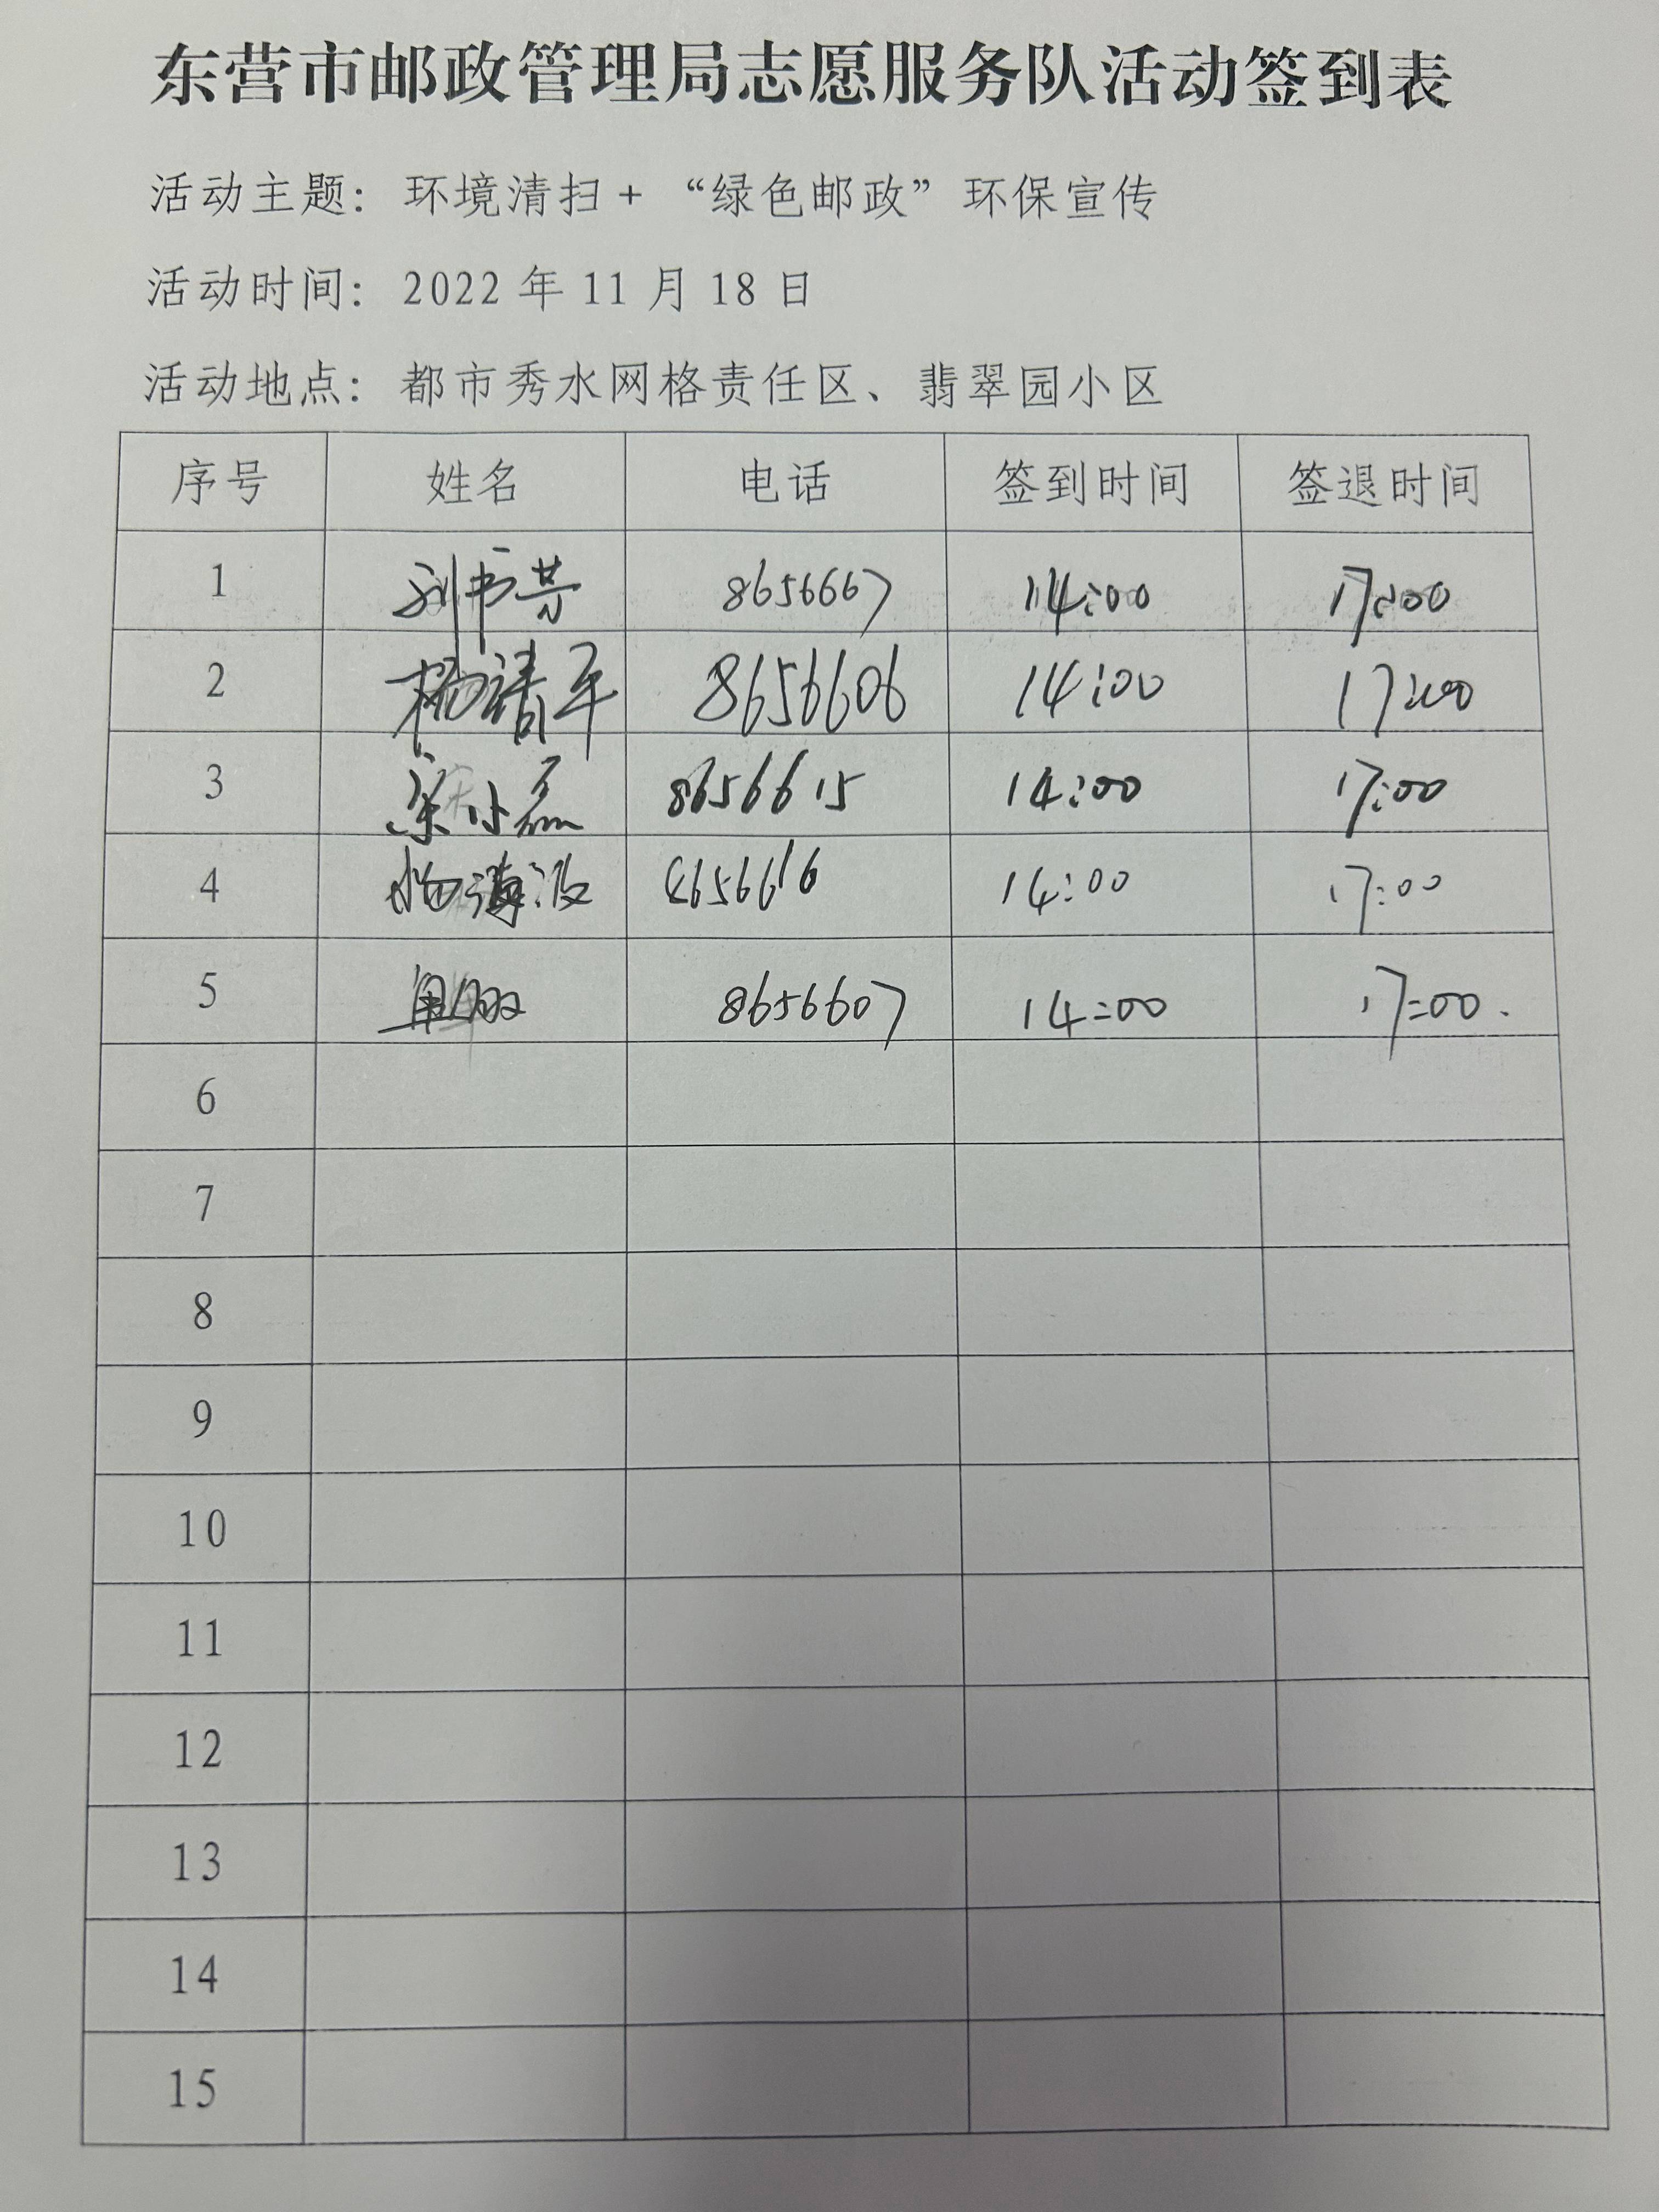 东营市邮政管理局志愿服务队活动签到表
活动主题：环境清扫+“绿色邮政”环保宣传
活动时间：2022年11月18日
活动地点：都市秀水网格责任区、翡翠园小区
序号 姓名 电话 签到时间 签退时间
1 刘书芳 8656667 14:00 17:00
2 杨靖平 8656606 14:00 17:00
3 宋小磊 8656615 14:00 17:00
4 杨海波 8656616 14:00 17:00
5 8656607 14:00 17:00
6
7
8
9
10
11
12
13
14
15